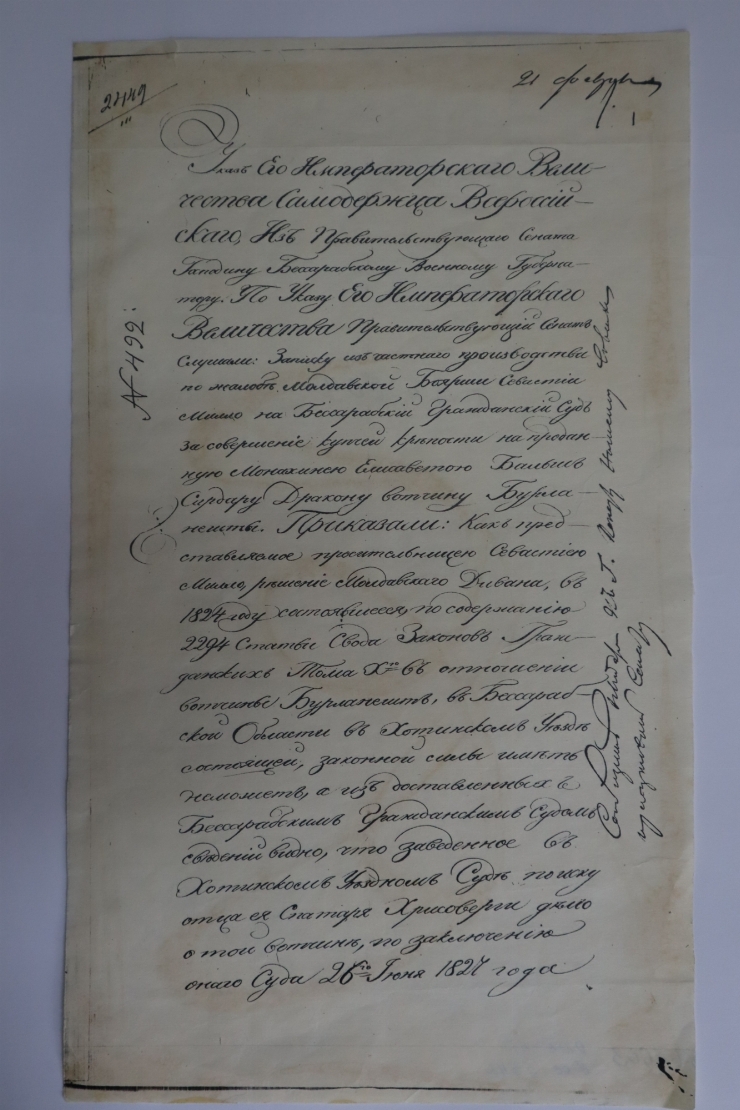 2449
21 февраля
1
№ 492:
Указъ Его Императорскаго Вели-
чества Самодержца Всероссій-
скаго, Изъ Правительствующаго Сената
Господину Бессарабскому Военному Губерна-
тору. По Указу Его Императорскаго
Величества Правительствующій Сенатъ
Слушали: Записку изъ частнаго производства
по жалобѣ Молдавской Боярши Севастіи
Милло на Бессарабскій Гражданскій Судъ
за совершеніе купчей крѣпости на продан-
ную Монахинею Елисаветою Бальшъ
Сирдару Дракону вотчину Бурла-
нешты. Приказали: Какъ пред-
ставляемое просительницею Севастіею
Милло, рѣшеніе Молдавскаго Дивана, въ
1824 году состоявшееся, по содержанію
2294 Статьи Свода Законовъ Граж-
данскихъ Тома Х въ отношеніи
вотчины Бурланештъ, въ Бессараб-
ской Области въ Хотинскомъ Уѣздѣ
состоящей, законной силы имѣть
неможетъ, а изъ доставленныхъ
Бессарабскимъ Гражданскимъ Судомъ
свѣденій видно, что заведенное въ
Хотинскомъ Уѣздномъ Судѣ по иску
отца ея Спатаря Хрисоверги дѣло
о той вотчинѣ, по заключенію
онаго Суда 26го Іюня 1827 года